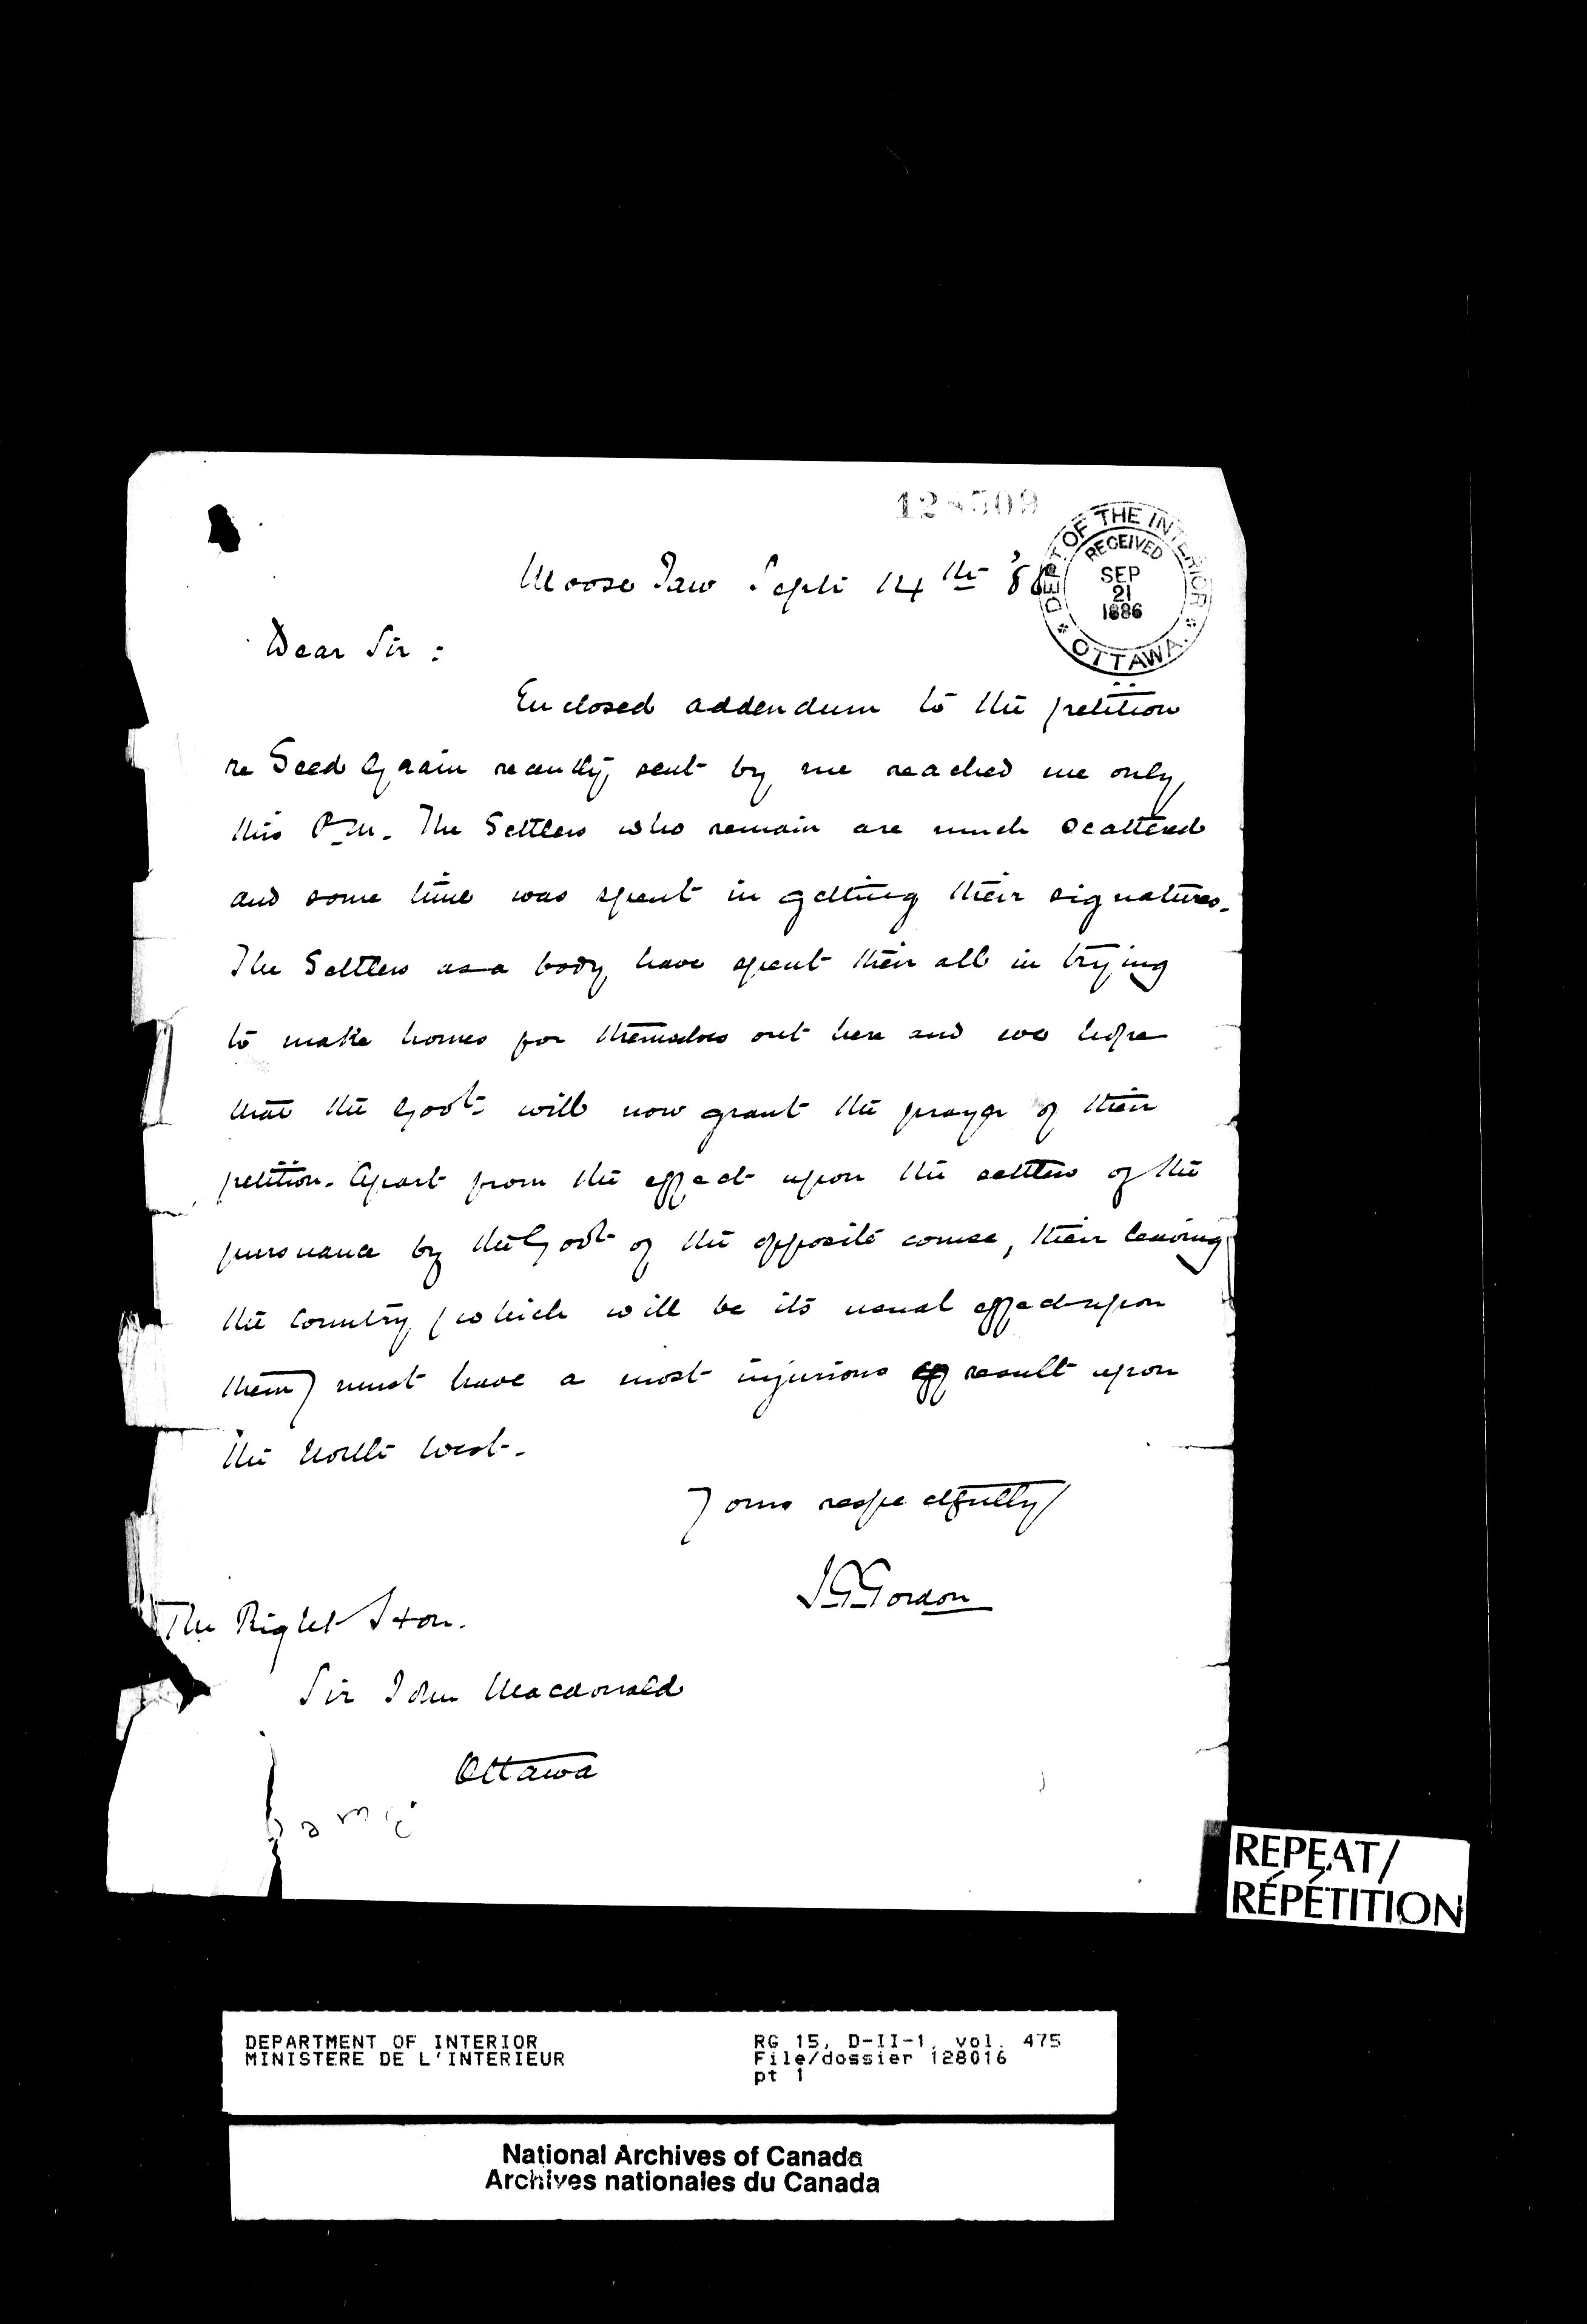 DEPT. OF THE INTERIOR
RECEIVED
SEP
21
1886
OTTAWA.
Moose Jaw Sept 14th '86
Dear Sir :
Enclosed addendum to the petition
re Seed Grain recently sent by me reached me only
this P.M. The Settlers who remain are much scattered
and some time was spent in getting their signatures.
The Settlers as a body have spent their all in trying
to make homes for themselves out here and we hope
that the Govt will now grant the prayer of their
petition. Apart from the effect upon the settlers of the
pursuance by the Govt of the opposite course, their leaving
the Country (which will be its usual effect upon
them) must have a most injurious result upon
the North West.
Yours respectfully
J G Gordon
The Right Hon.
Sir John Macdonald
Ottawa
REPEAT/
RÉPÉTITION
DEPARTMENT OF INTERIOR
MINISTERE DE L'INTERIEUR
RG 15, D-II-1, vol. 475
File/dossier 128016
pt 1
National Archives of Canada
Archives nationales du Canada